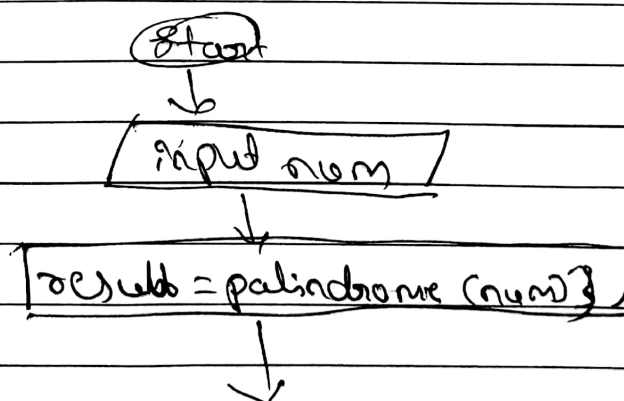 Start
input num
result = palindrome (num)